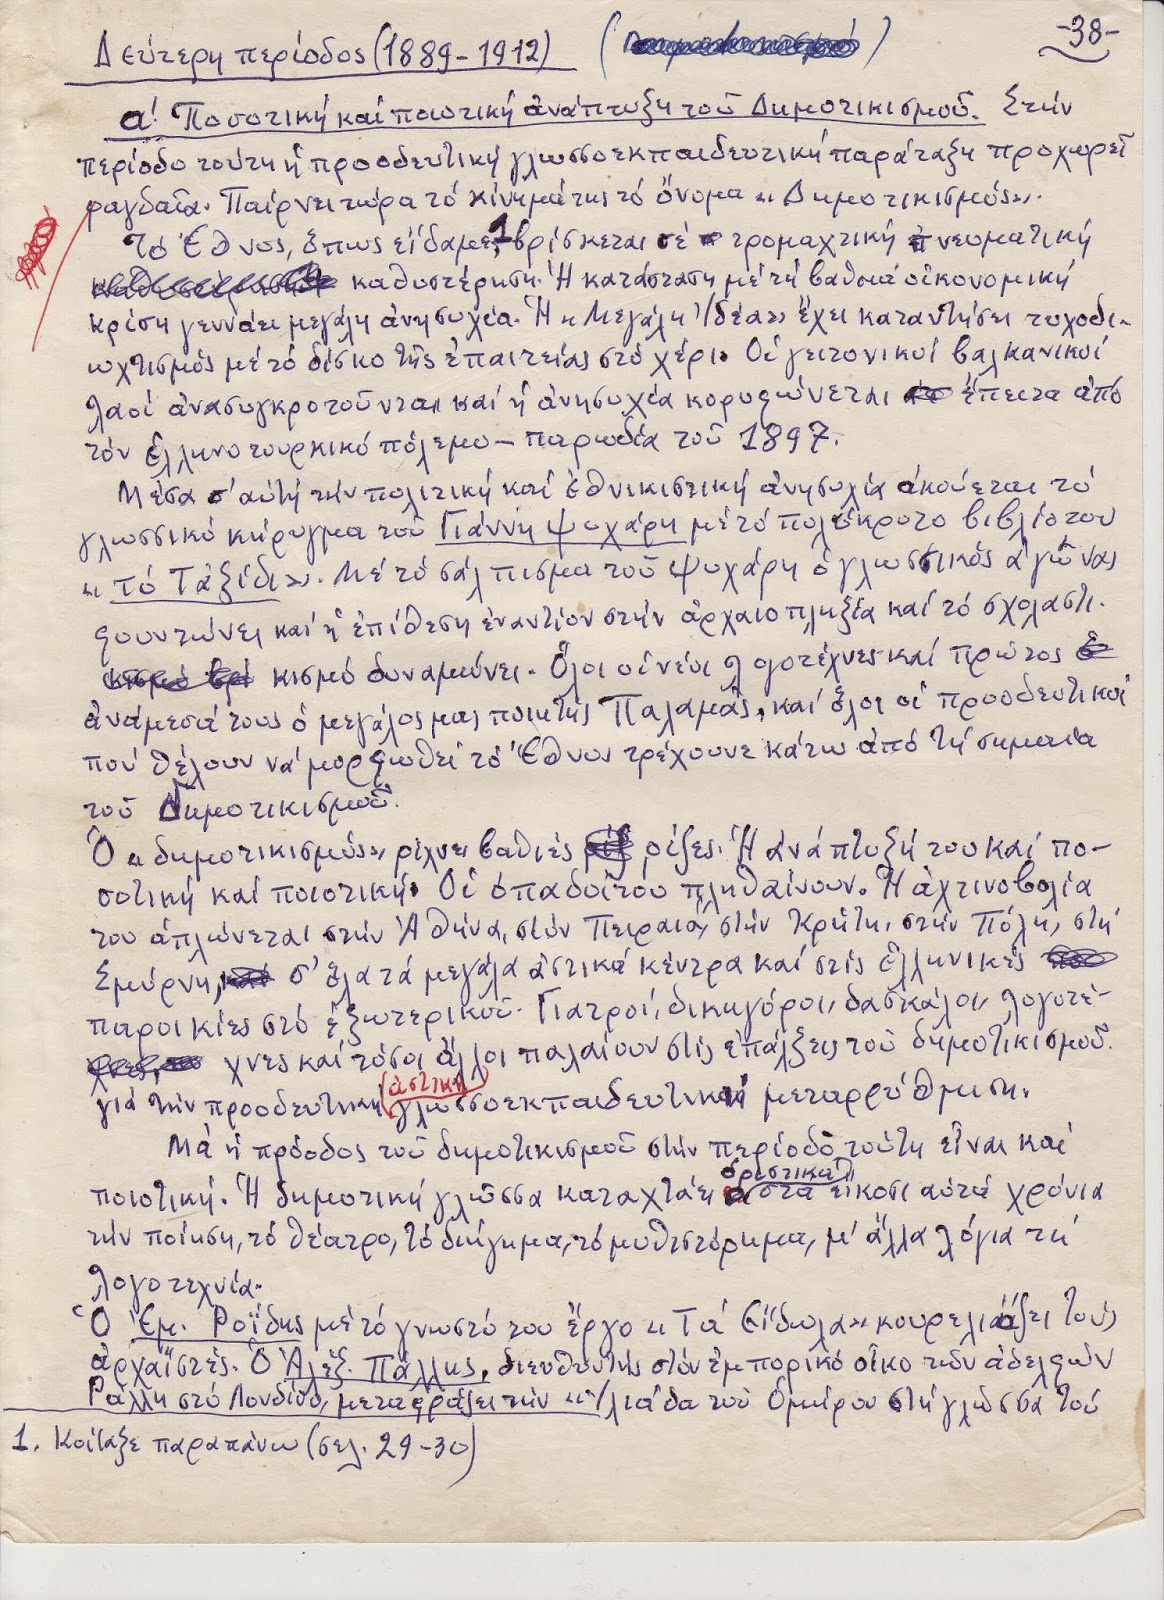 -38-
Δεύτερη περίοδος (1889-1912) ( )
α! Ποσοτική καί ποιοτική ἀνάπτυξη τοῦ Δημοτικισμοῦ. Στήν
περίοδο τούτη ἡ προοδευτική γλωσσοεκπαιδευτική παράταξη προχωρεῖ
ραγδαῖα. Παίρνει τώρα τό κίνημά της τό ὄνομα «Δημοτικισμός».
Τό Ἔθνος, ὅπως εἴδαμε,1 βρίσκεται σέ τρομαχτική πνευματική
καθυστέρηση. Ἡ κατάσταση μέ τή βαθειά οἰκονομική
κρίση γεννάει μεγάλη ἀνησυχία. Ἡ «Μεγάλη Ἰδέα» ἔχει καταντήσει τυχοδι-
ωχτισμός μέ τό δίσκο τῆς ἐπαιτείας στό χέρι. Οἱ γειτονικοί βαλκανικοί
λαοί ἀνασυγκροτοῦνται καί ἡ ἀνησυχία κορυφώνεται ἔπειτα ἀπό
τόν ἑλληνοτουρκικό πόλεμο – παρωδία τοῦ 1897.
Μέσα σ' αὐτή τήν πολιτική καί ἐθνικιστική ἀνησυχία ἀκούεται τό
γλωσσικό κήρυγμα τοῦ Γιάννη Ψυχάρη μέ τό πολύκροτο βιβλίο του
«Τό Ταξίδι». Μέ τό σάλπισμα τοῦ Ψυχάρη ὁ γλωσσικός ἀγώνας
φουντώνει καί ἡ ἐπίθεση ἐναντίον στήν ἀρχαιοπληξία καί τό σχολαστι-
κισμό δυναμώνει. Ὅλοι οἱ νέοι λογοτέχνες καί πρῶτος
ἀνάμεσά τους ὁ μεγάλος μας ποιητής Παλαμᾶς, καί ὅλοι οἱ προοδευτικοί
πού θέλουν νά μορφωθεῖ τό Ἔθνος τρέχουνε κάτω ἀπό τή σημαία
τοῦ Δημοτικισμοῦ.
Ὁ «δημοτικισμός» ρίχνει βαθιές ρίζες. Ἡ ἀνάπτυξή του καί πο-
σοτική καί ποιοτική. Οἱ ὀπαδοί του πληθαίνουν. Ἡ ἀχτινοβολία
του ἁπλώνεται στήν Ἀθήνα, στόν Πειραιά, στήν Κρήτη, στήν Πόλη, στή
Σμύρνη, σ' ὅλα τά μεγάλα ἀστικά κέντρα καί στίς ἑλληνικές
παροικίες στό ἐξωτερικοῦ. Γιατροί, δικηγόροι, δασκάλοι, λογοτέ-
χνες καί τόσοι ἄλλοι παλαίουν στίς ἐπάλξεις τοῦ δημοτικισμοῦ.
γιά τήν προοδευτική (ἀστική) γλωσσοεκπαιδευτική μεταρρύθμιση.
Μά ἡ πρόοδος τοῦ δημοτικισμοῦ στήν περίοδο τούτη εἶναι καί
ποιοτική. Ἡ δημοτική γλῶσσα καταχτάει ὁριστικά στά εἴκοσι αὐτά χρόνια
τήν ποίηση, τό θέατρο, τό διήγημα, τό μυθιστόρημα, μ' ἄλλα λόγια τή
λογοτεχνία.
Ὁ Ἐμ. Ροΐδης μέ τό γνωστό του ἔργο «Τά Εἴδωλα» κουρελιάζει τούς
ἀρχαϊστές. Ὁ Ἀλέξ. Πάλλης, διευθυντής στόν ἐμπορικό οἶκο τῶν ἀδελφῶν
Ράλλη στό Λονδίνο, μεταφράζει τήν «Ἰλιάδα τοῦ Ὁμήρου στή γλώσσα τοῦ
1. Κοίταξε παραπάνω (σελ. 29-30)